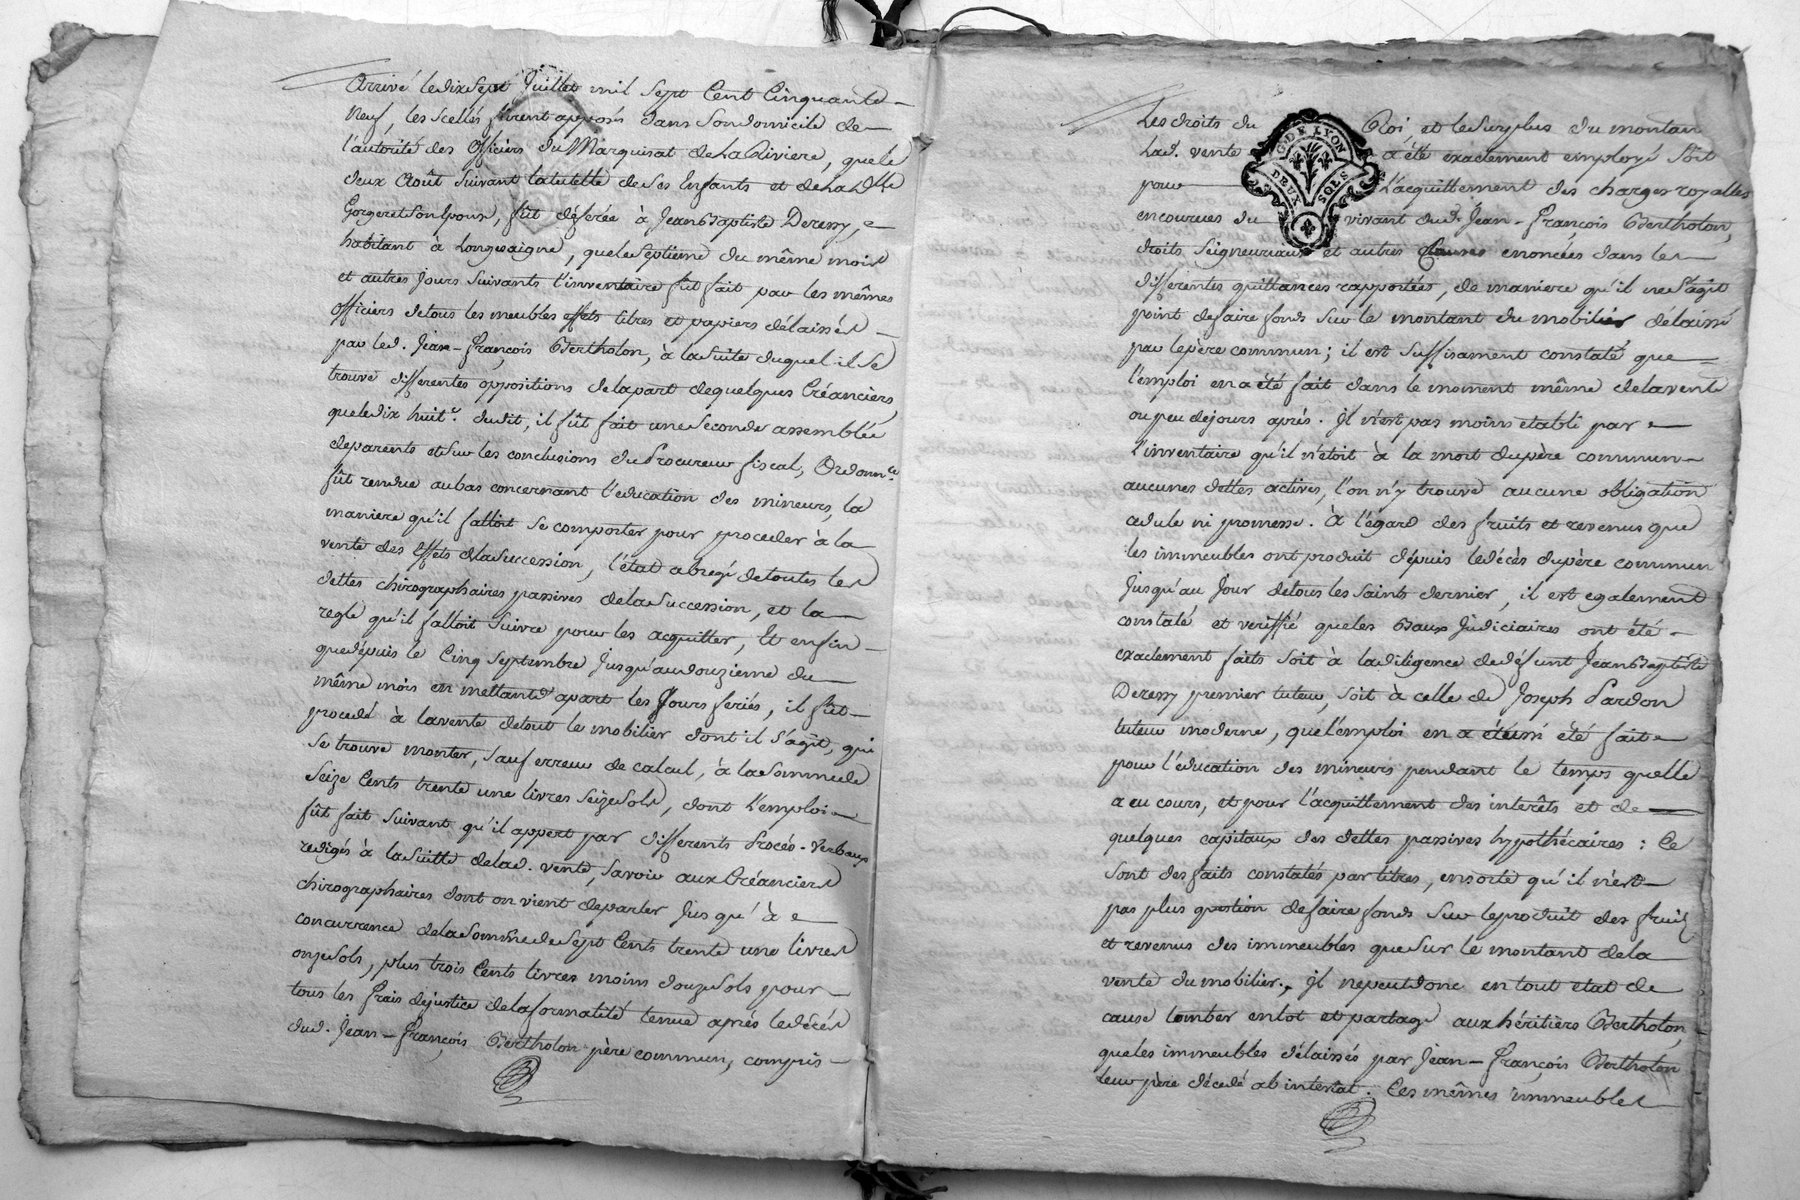 Arrivé le dix sept Juillet mil sept Cent Cinquante
Neuf, les scellés furent apposés dans son domicile de
l'autorité des Officiers du Marquisat de La Riviere, que le
deux Août suivant la tutelle de ses Enfants et de la Dlle
Gorgeret son Epouse, fût déférée à Jean Baptiste Deressy,
habitant à Longesaigne, que le septieme du même mois
et autres Jours suivants l'inventaire fut fait par les mêmes
officiers de tous les meubles effets titres et papiers délaissés
par led. Jean-François Bertholon, à la suite duquel il se
trouve differentes oppositions de la part de quelques Créanciers,
que le dix huit.e dudit, il fût fait une seconde assemblée
de parents et sur les conclusions du Procureur fiscal, Ordonn.ce
fût rendue au bas concernant l'education des mineurs, la
maniere qu'il falloit se comporter pour proceder à la
vente des effets de la succession, l'état abregé de toutes les
dettes chirographaires passives de la succession, et la
regle qu'il falloit suivre pour les acquitter, Et enfin
que dépuis le Cinq Septembre jusqu'au douzieme du
même mois en mettant apart les Jours feriés, il fût
procedé à la vente de tout le mobilier dont il s'agit, qui
se trouve monter, sauf erreur de calcul, à la somme de
Seize Cents trente une livres seize sols, dont l'emploi
fût fait suivant qu'il appert par differents Procés-verbaux
redigés à la suitte de lad. vente, savoir aux Créanciers
chirographaires dont on vient de parler Jusqu'à
concurrance de la somme de Sept Cents trente une livres
onze sols, plus trois Cents livres moins douze sols pour
tous les frais de justice de la formalité tenue aprés le décés
dud. Jean-François Bertholon père commun, compris
Les droits du Roi et le surplus du montan
lad. vente a été exactement employé soit
pour l'acquittement des charges royalles
encourues du vivant dud. Jean-François Bertholon,
G. DE LYON
DEUX SOLS
droits seigneuriaux et autres Causes enoncées dans les
differentes quittances rapportées, de maniere qu'il ne s'agit
point de faire fonds sur le montant du mobilier délaissé
par le père commun; il est suffisament constaté que
l'emploi en a été fait dans le moment même de la vente
ou peu de jours aprés. Il n'est pas moins etabli par
l'inventaire qu'il n'étoit à la mort du père commun
aucunes dettes actives, l'on n'y trouve aucune obligation
cedule ni promesse. à l'égard des fruits et revenus que
les immeubles ont produit dépuis le décès du père commun
Jusqu'au Jour de tous les saints dernier, il est egalement
constaté et veriffié que les Baux Judiciaires ont été
exactement faits soit à la diligence de défunt Jean Baptiste
Deressy premier tuteur, soit à celle de Joseph Pardon
tuteur moderne, que l'emploi en a été fait
pour l'education des mineurs pendant le temps quelle
a eu cours, et pour l'acquittement des intérêts et de
quelques capitaux des dettes passives hypothécaires: Ce
sont des faits constatés par titres, ensorte qu'il n'est
pas plus question de faire fonds sur le produit des fruits
et revenus des immeubles que sur le montant de la
vente du mobilier. Il ne peut donc en tout etat de
cause tomber en lot et partage aux héritiers Bertholon,
que les immeubles délaissés par Jean-François Bertholon
leur père décédé ab intestat. Ces mêmes immeubles